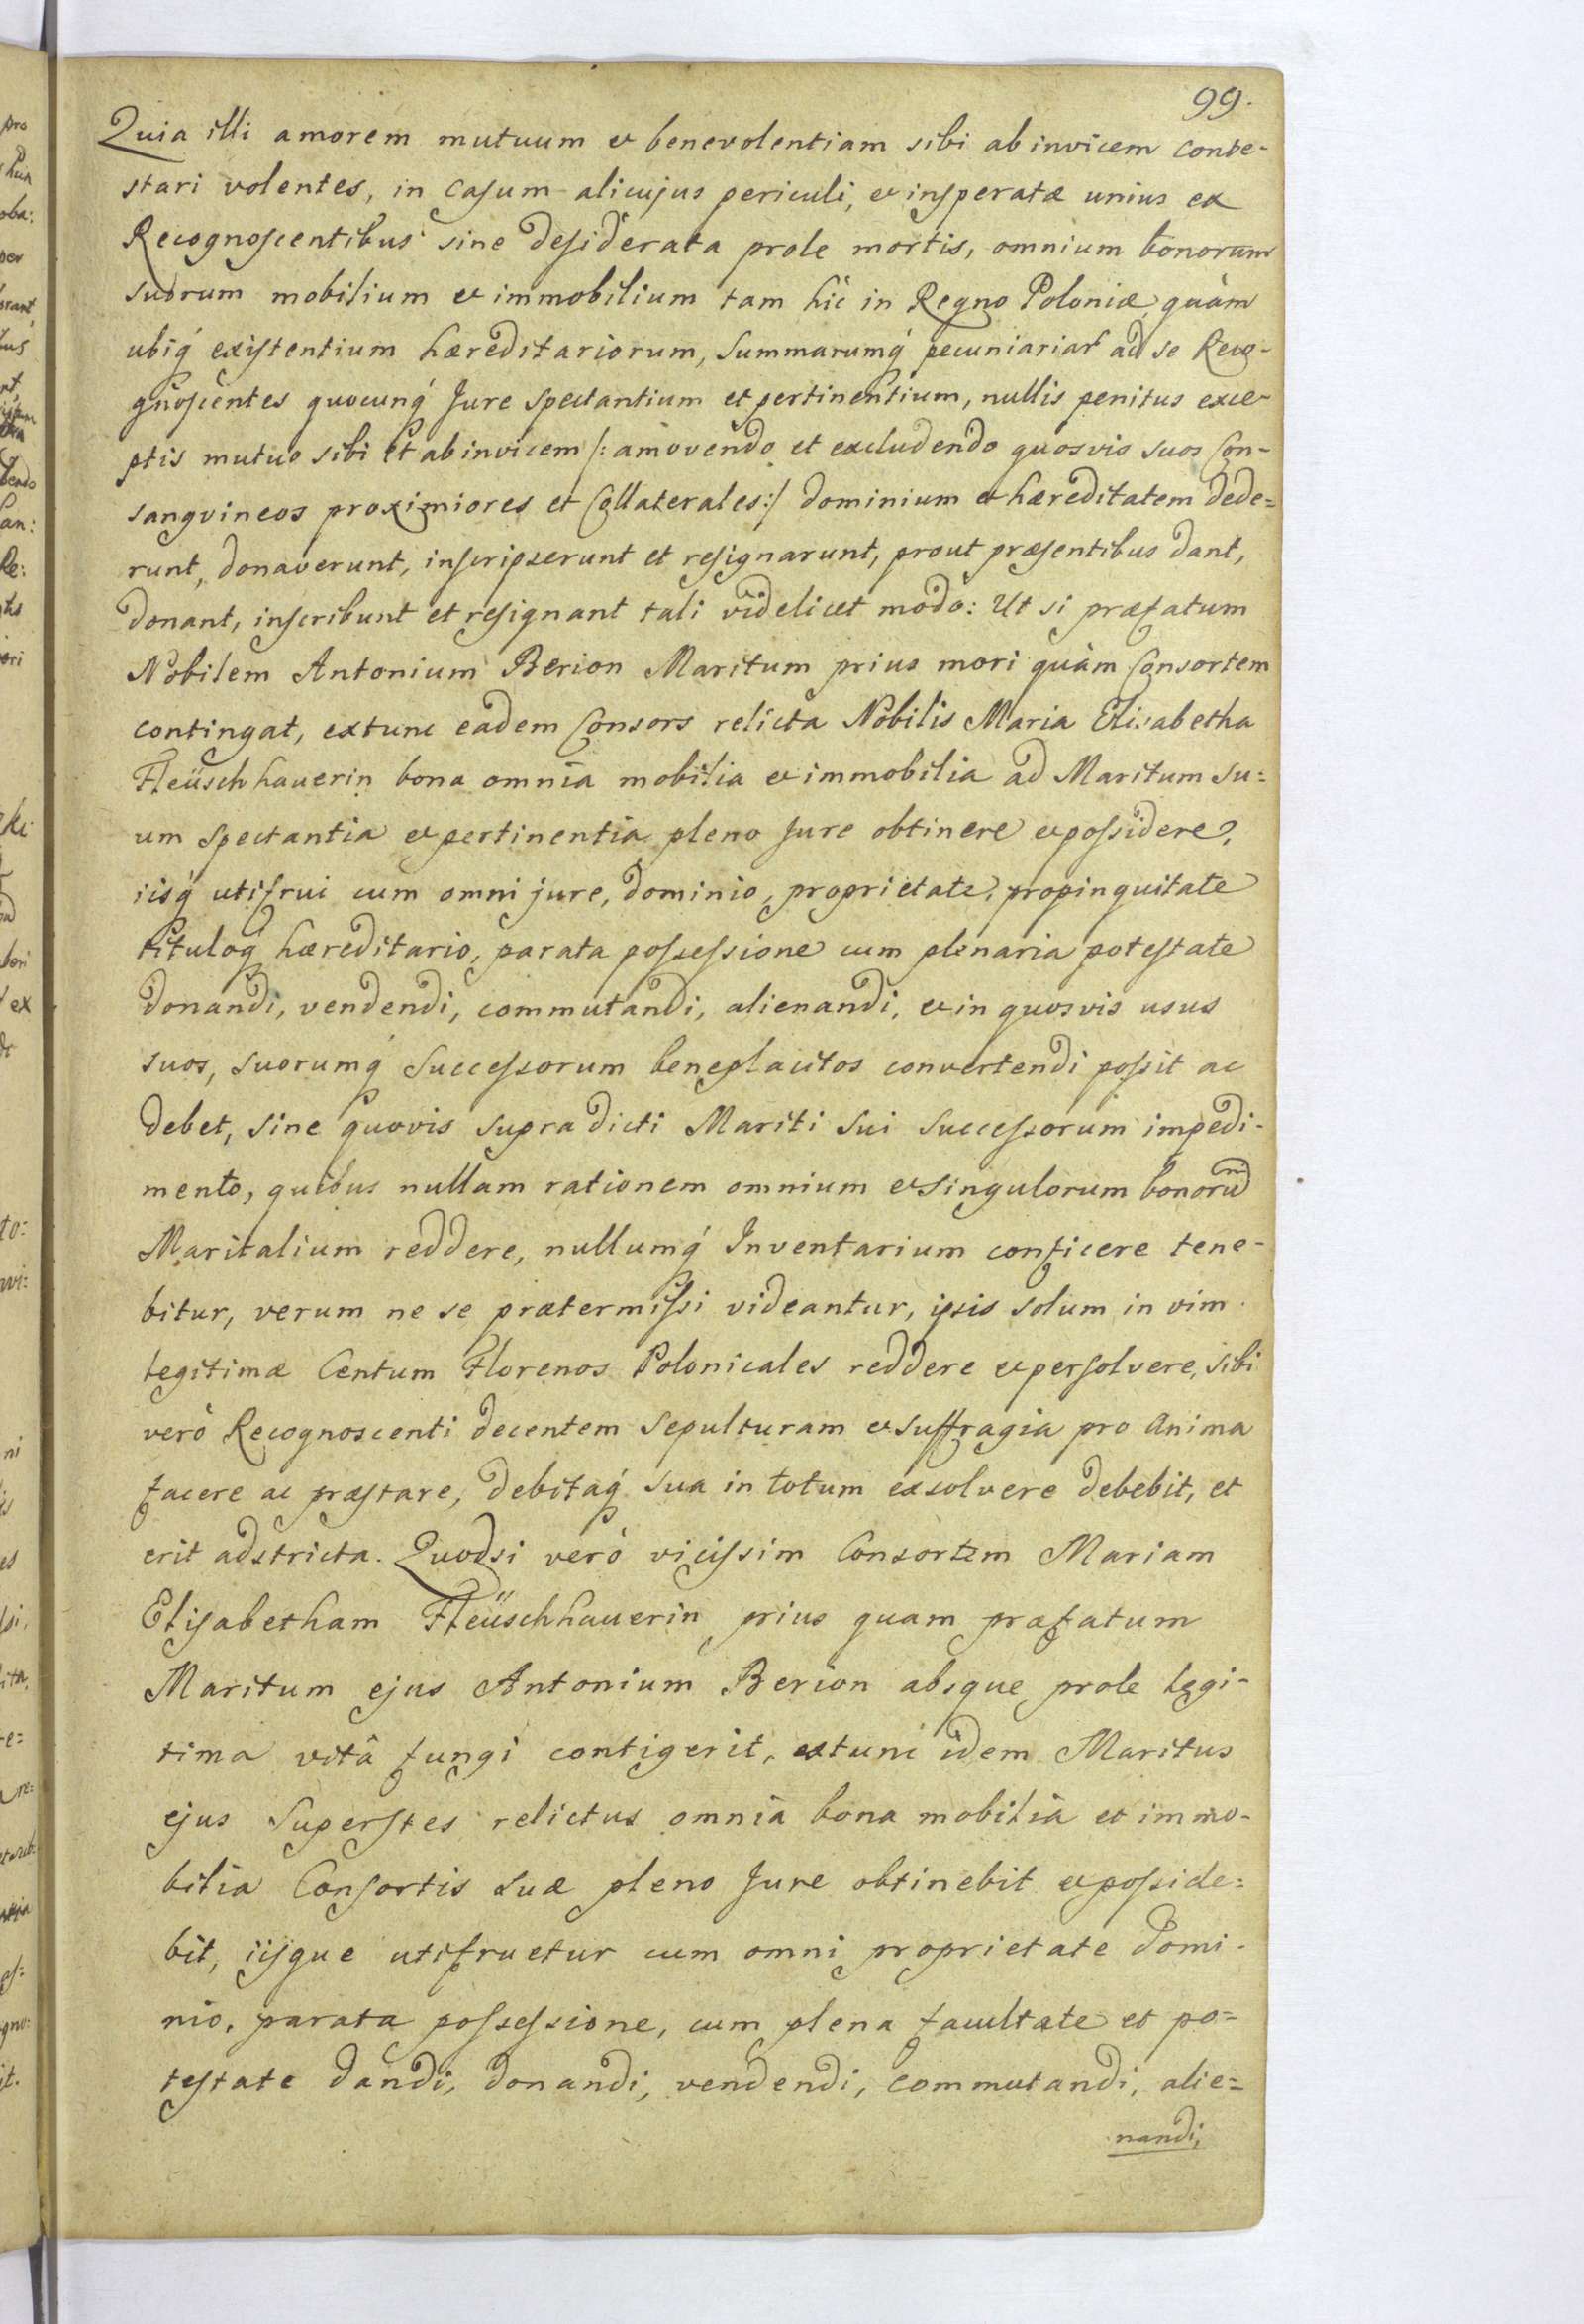 99.
Quia illi amorem mutuum et benevolentiam sibi ab invicem conte-
stari volentes, in Casum alicujus periculi, et insperatæ unius ex
Recognoscentibus sine desiderata prole mortis, omnium bonorum
suorum mobilium et immobilium tam hic in Regno Poloniæ, quàm
ubiq́ existentium hæreditariorum, summarumq́ pecuniariar ad se Reco-
gnoscentes quocunq́ Jure spectantium et pertinentium, nullis penitus exce-
ptis mutuo sibi et ab invicem /: amovendo et excludendo quosvis suos Con-
sangvineos proximiores et Collaterales:/ dominium et hæreditatem dede=
runt, donaverunt, inscripserunt et resignarunt, prout præsentibus dant,
donant, inscribunt et resignant tali videlicet modo: Ut si præfatum
Nobilem Antonium Berion Maritum prius mori quàm Consortem
contingat, extunc eadem Consors relicta Nobilis Maria Elisabetha
Fleüschhauerin bona omnia mobilia et immobilia ad Maritum su=
um spectantia et pertinentia pleno Jure obtinere et possidere,
iisq́ utifrui cum omni jure, dominio, proprietate, propinquitate
tituloq́ hæreditario, parata possessione cum plenaria potestate
donandi, vendendi, commutandi, alienandi, et in quosvis usus
suos, suorumq́ Successorum beneplacitos convertendi possit ac
debet, sine quovis supradicti Mariti sui successorum impedi-
mento, quibus nullam rationem omnium et singulorum bonorum
Maritalium reddere, nullumq́ Inventarium conficere tene-
bitur, verum ne se prætermissi videantur, ipsis solum in vim
legitimæ Centum Florenos Polonicales reddere et persolvere, sibi
verò Recognoscenti decentem sepulturam et suffragia pro Anima
facere ac præstare, debitaq́ sua in totum exsolvere debebit, et
erit adstricta. Quodsi verò vicissim Consortem Mariam
Elisabetham Fleüschhauerin prius quam præfatum
Maritum ejus Antonium Berion absque prole legi-
tima vitâ fungi contigerit, extunc idem Maritus
ejus Superstes relictus omnia bona mobilia et immo-
bilia Consortis suæ pleno Jure obtinebit et posside=
bit, iisque utifruetur cum omni proprietate domi-
nio, parata possessione, cum plena facultate et po=
testate dandi, donandi, vendendi, commutandi, alie=
nandi,